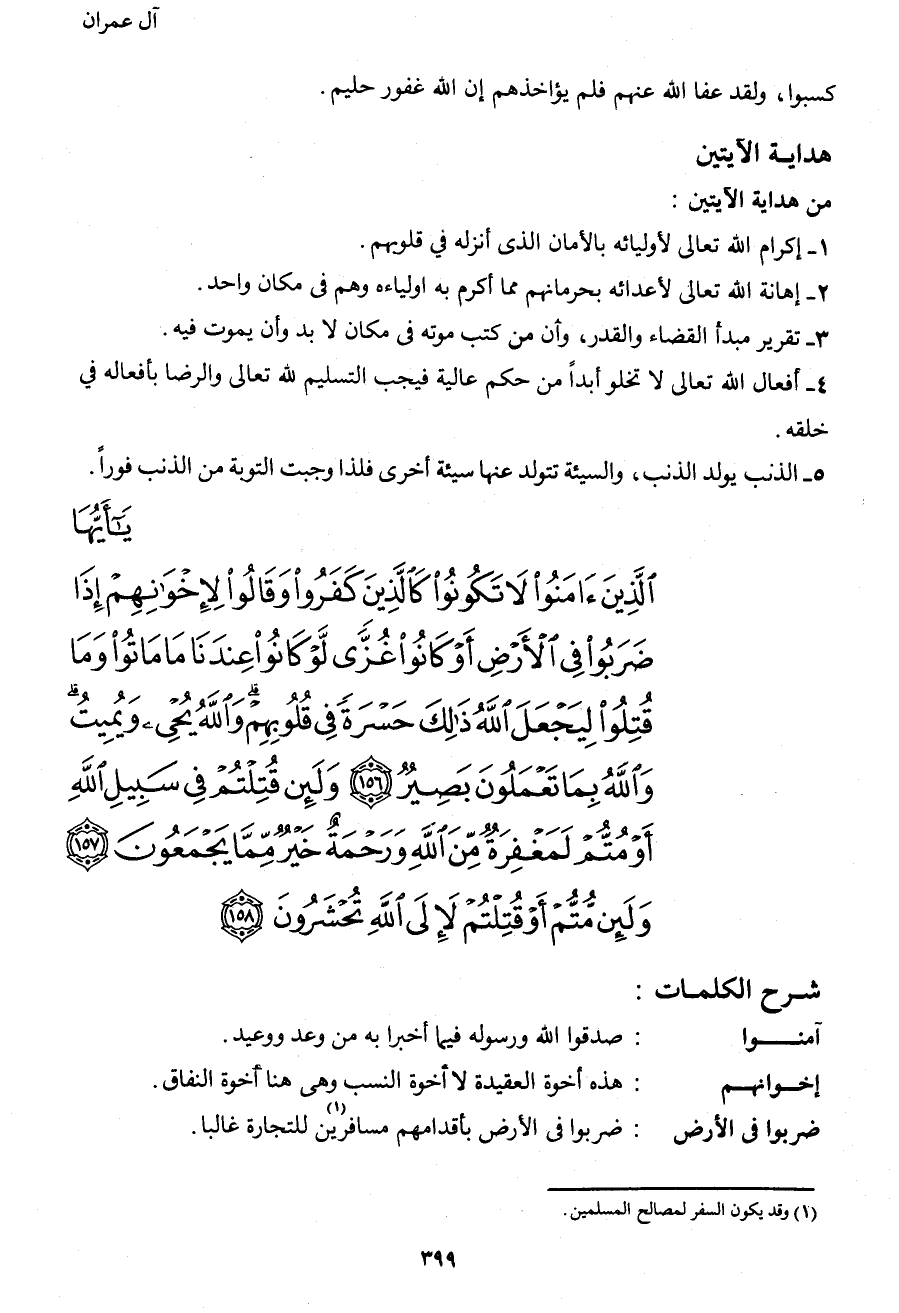 آل عمران
كسبوا، ولقد عفا الله عنهم فلم يؤاخذهم إن الله غفور حليم.
هدايـة الآيتين
من هداية الآيتين :
١ـ إكرام الله تعالى لأوليائه بالأمان الذى أنزله في قلوبهم.
٢ـ إهانة الله تعالى لأعدائه بحرمانهم مما أكرم به اولياءه وهم فى مكان واحد.
٣ـ تقرير مبدأ القضاء والقدر، وأن من كتب موته فى مكان لا بد وأن يموت فيه.
٤ـ أفعال الله تعالى لا تخلو أبداً من حكم عالية فيجب التسليم لله تعالى والرضا بأفعاله في
خلقه.
٥ـ الذنب يولد الذنب، والسيئة تتولد عنها سيئة أخرى فلذا وجبت التوبة من الذنب فوراً.
يَـٰٓأَيُّهَا
ٱلَّذِينَ ءَامَنُوا۟ لَا تَكُونُوا۟ كَٱلَّذِينَ كَفَرُوا۟ وَقَالُوا۟ لِإِخْوَٰنِهِمْ إِذَا
ضَرَبُوا۟ فِى ٱلْأَرْضِ أَوْ كَانُوا۟ غُزًّى لَّوْ كَانُوا۟ عِندَنَا مَا مَاتُوا۟ وَمَا
قُتِلُوا۟ لِيَجْعَلَ ٱللَّهُ ذَٰلِكَ حَسْرَةً فِى قُلُوبِهِمْ ۗ وَٱللَّهُ يُحْىِۦ وَيُمِيتُ ۗ
وَٱللَّهُ بِمَا تَعْمَلُونَ بَصِيرٌ ١٥٦ وَلَئِن قُتِلْتُمْ فِى سَبِيلِ ٱللَّهِ
أَوْ مُتُّمْ لَمَغْفِرَةٌ مِّنَ ٱللَّهِ وَرَحْمَةٌ خَيْرٌ مِّمَّا يَجْمَعُونَ ١٥٧
وَلَئِن مُّتُّمْ أَوْ قُتِلْتُمْ لَإِلَى ٱللَّهِ تُحْشَرُونَ ١٥٨
شـرح الكلمـات :
آمنــــوا : صدقوا الله ورسوله فيما أخبرا به من وعد ووعيد.
إخـوانهـم : هذه أخوة العقيدة لا أخوة النسب وهى هنا أخوة النفاق.
ضربوا فى الأرض : ضربوا فى الأرض بأقدامهم مسافرين(١) للتجارة غالبا.
(١) وقد يكون السفر لمصالح المسلمين.
٣٩٩